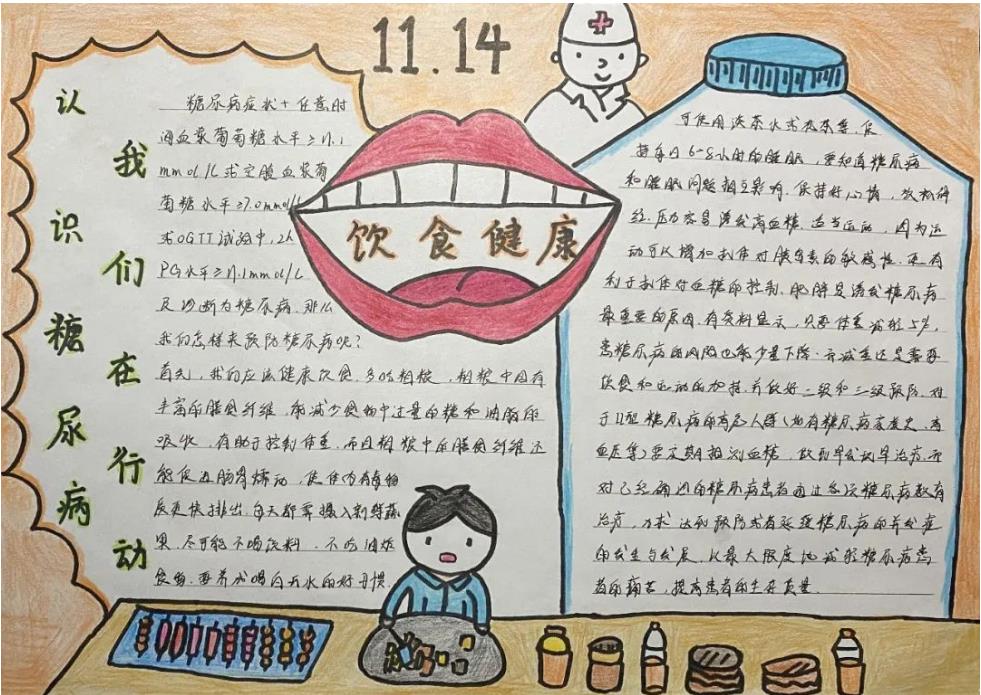 11.14
认识糖尿病
我们在行动
饮食健康
糖尿病症状+任意时
间血浆葡萄糖水平≥11.1
mmol/L或空腹血浆葡
萄糖水平≥7.0mmol/L
或OGTT试验中，2h
PG水平≥11.1mmol/L
及诊断为糖尿病。那么
我们怎样来预防糖尿病呢？
首先，我们应该健康饮食，多吃粗粮，粗粮中因有
丰富的膳食纤维，能减少食物中过量的糖和油脂的
吸收，有助于控制体重，而且粗粮中的膳食纤维还
能促进肠胃蠕动，使体内有毒物
质更快排出。每天都要摄入新鲜蔬
果，尽可能不喝饮料，不吃油炸
食物，要养成喝白开水的好习惯，
可使用淡茶水或花茶等，保
持每日6-8小时的睡眠，要知道糖尿病
和睡眠问题相互影响，保持好心情，放松神
经，压力容易诱发高血糖。适当运动，因为运
动可以增加机体对胰岛素的敏感性，更有
利于机体对血糖的控制，肥胖是诱发糖尿病
最重要的原因，有资料显示，只要体重减轻5%，
患糖尿病的风险也能少量下降，而减重还是需要
饮食和运动的加持，并做好二级和三级预防，对
于II型糖尿病的有危人群（如有糖尿病家族史、高
血压等）要定期检测血糖，做到早发现早治疗，而
对已经确诊的糖尿病患者通过各项糖尿病教育
治疗，力求达到预防或者延缓糖尿病的并发症
的发生与发展，以最大限度地减轻糖尿病患
者的痛苦，提高患者的生存质量。